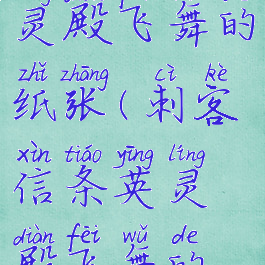 灵殿飞舞的
zhǐ zhāng cì kè
纸张(刺客
xìn tiáo yīng líng
信条英灵
diàn fēi wǔ de
殿飞舞的